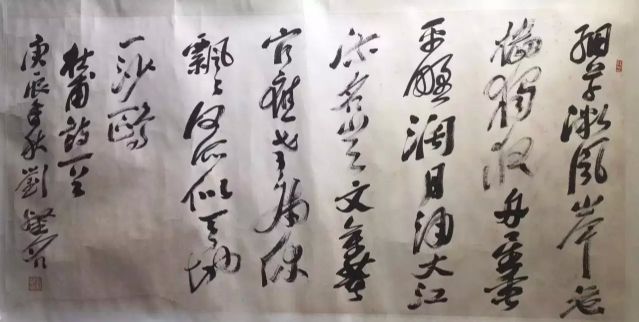 細草微風岸危
檣獨夜舟星垂
平野闊月涌大江
流名豈文章著
官應老病休
飄々何所似天地
一沙鷗
杜甫詩一首
庚辰年秋劉